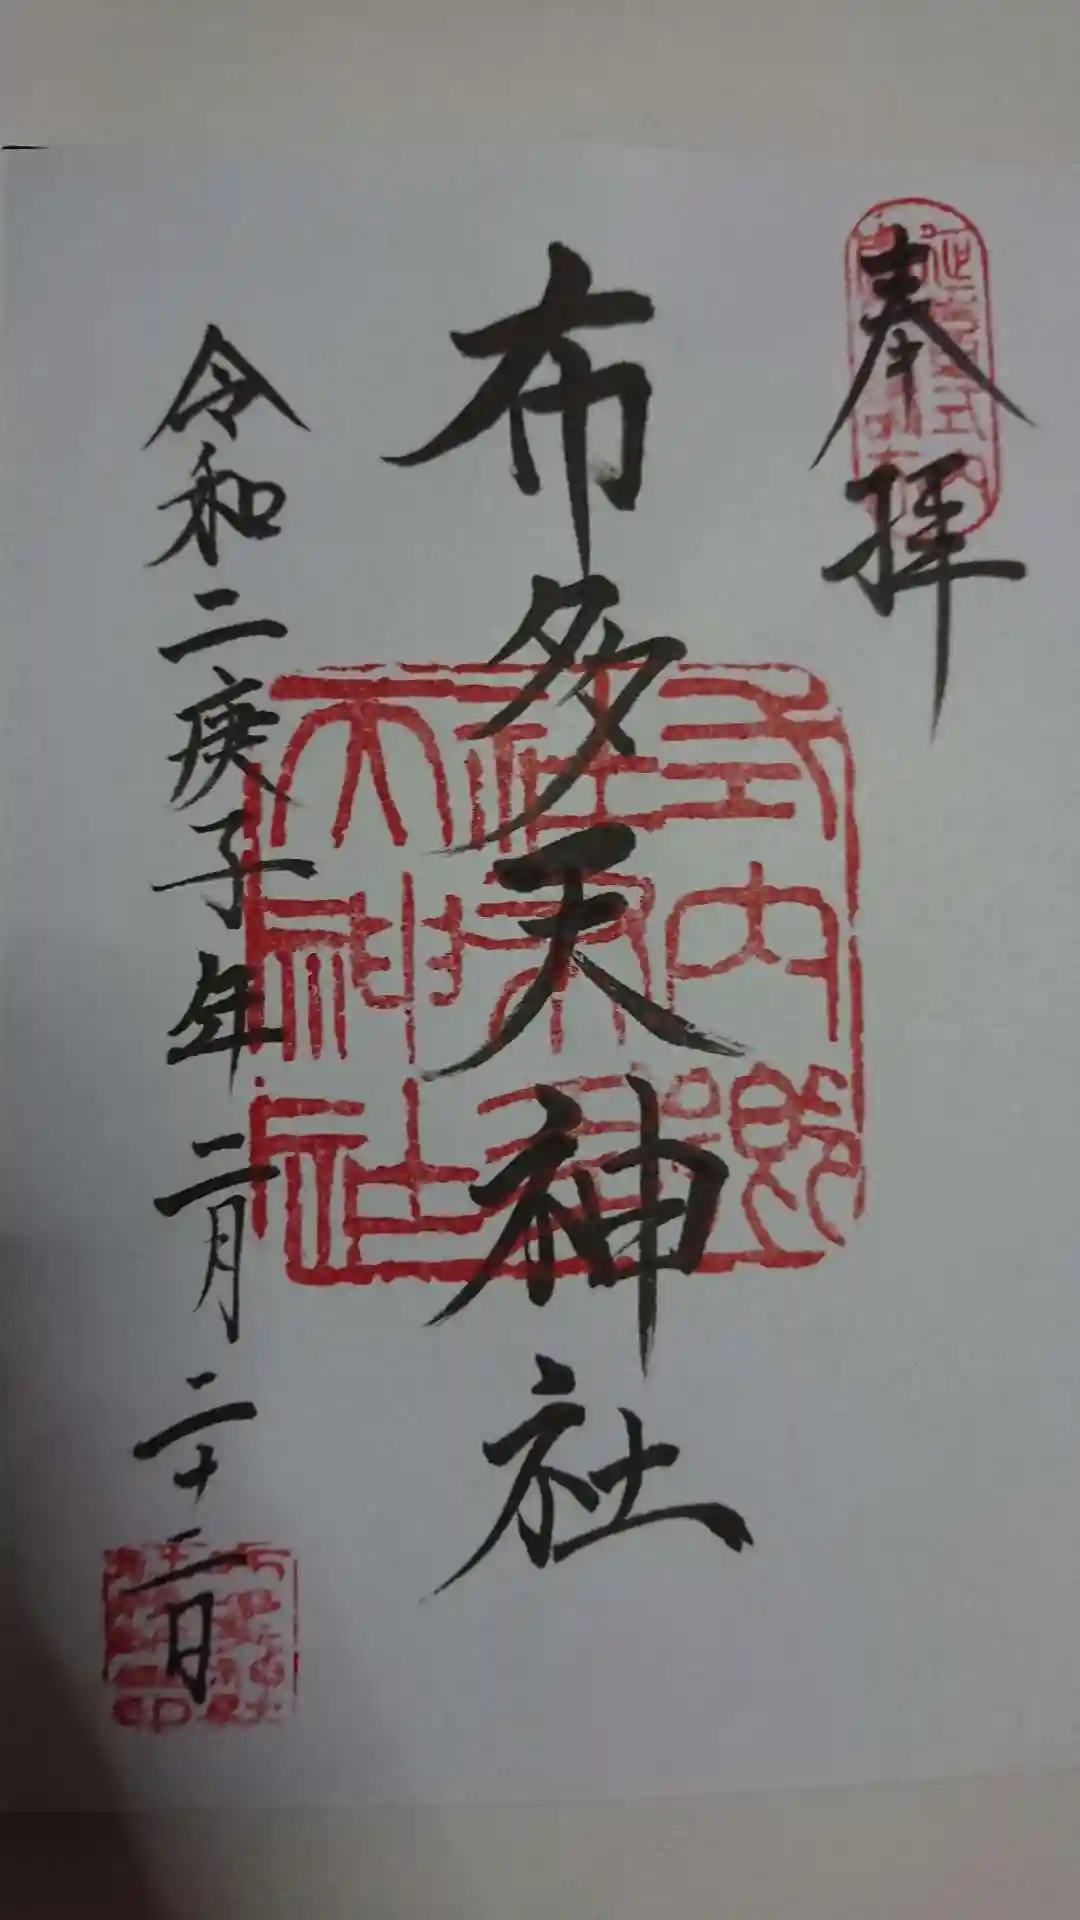 奉拝
延喜式内
布多天神社
式内郷
社布多
天神社
令和二庚子年二月二十二日